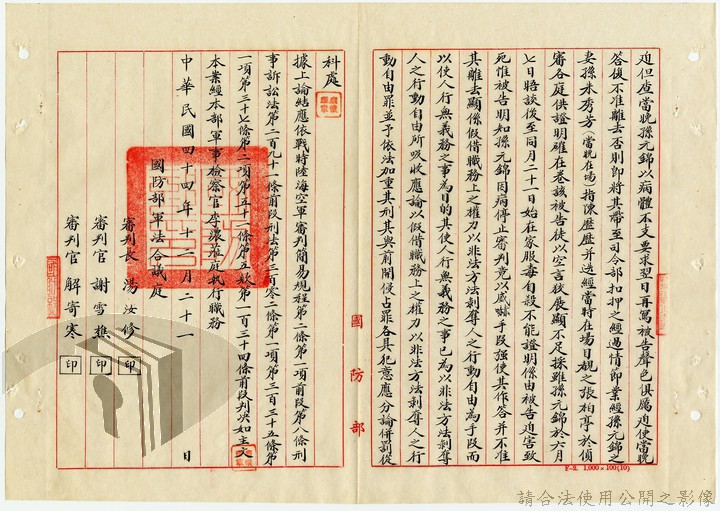 迫但查當晚孫元錦以病體不支要求翌日再寫被告聲色俱厲迫使當晚
答復不准離去否則即將其帶至司令部扣押之經過情節業經孫元錦之
妻孫朱秀芳(當晚在場)指陳歷歷並迭經當時在場目覩之張柏亭於偵
審各庭供證明確在卷該被告徒以空言狡展顯不足採雖孫元錦於六月
七日晤談後至同月二十一日始在家服毒自殺不能證明係由被告迫害致
死惟被告明知孫元錦因病停止審判竟以威嚇手段強使其作答並不准
其離去顯係假借職務上之權力以非法方法剝奪人之行動自由為手段而
以使人行無義務之事為目的其使人行無義務之事已為以非法方法剝奪
人之行動自由所吸收應論以假借職務上之權力以非法方法剝奪人之行
動自由罪並予依法加重其刑其與前開侵占罪各具犯意應分論併罰從
國防部
F-2. 1,000×100(10)
科處
據上論結應依戰時陸海空軍審判簡易規程第二條第一項前段第八條刑
事訴訟法第二百九十一條前段刑法第三百零二條第一項第三百三十五條第
一項第三十七條第二項第五十一條第五款第一百三十四條前段判決如主文
本案經本部軍事檢察官李濃蒞庭執行職務
中華民國四十四年十二月二十一日
國防部軍法合議庭
審判長 湯汝修 印
審判官 謝雪樵 印
審判官 解寄寒 印
請合法使用公開之影像